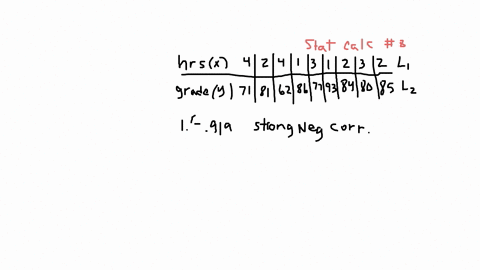 Stat calc #3
hrs(x) 4 2 4 1 3 1 2 3 2 L₁
grade(y) 71 81 62 86 77 93 84 80 85 L₂
1. r = -.919 strong Neg Corr.